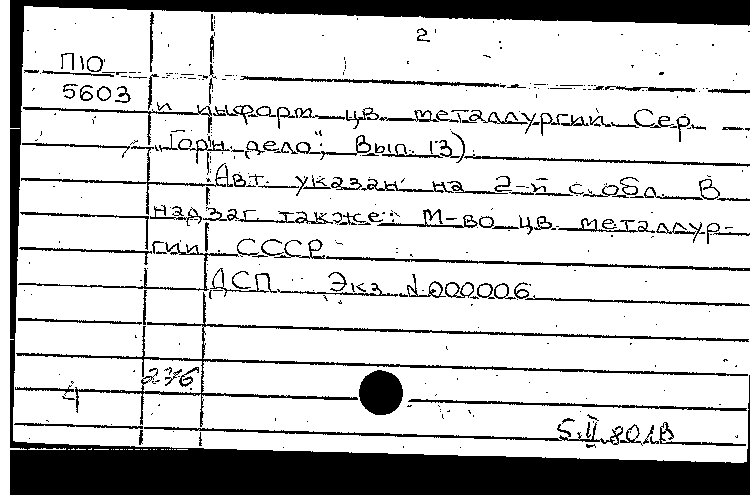 2
П10
5603
и информ. цв. металлургии. Сер.
"Горн. дело"; Вып. 13).
Авт. указан на 2-й с. обл. В
надзаг. также: М-во цв. металлур-
гии СССР
ДСП. Экз. №000006.
236
4
5.II.80